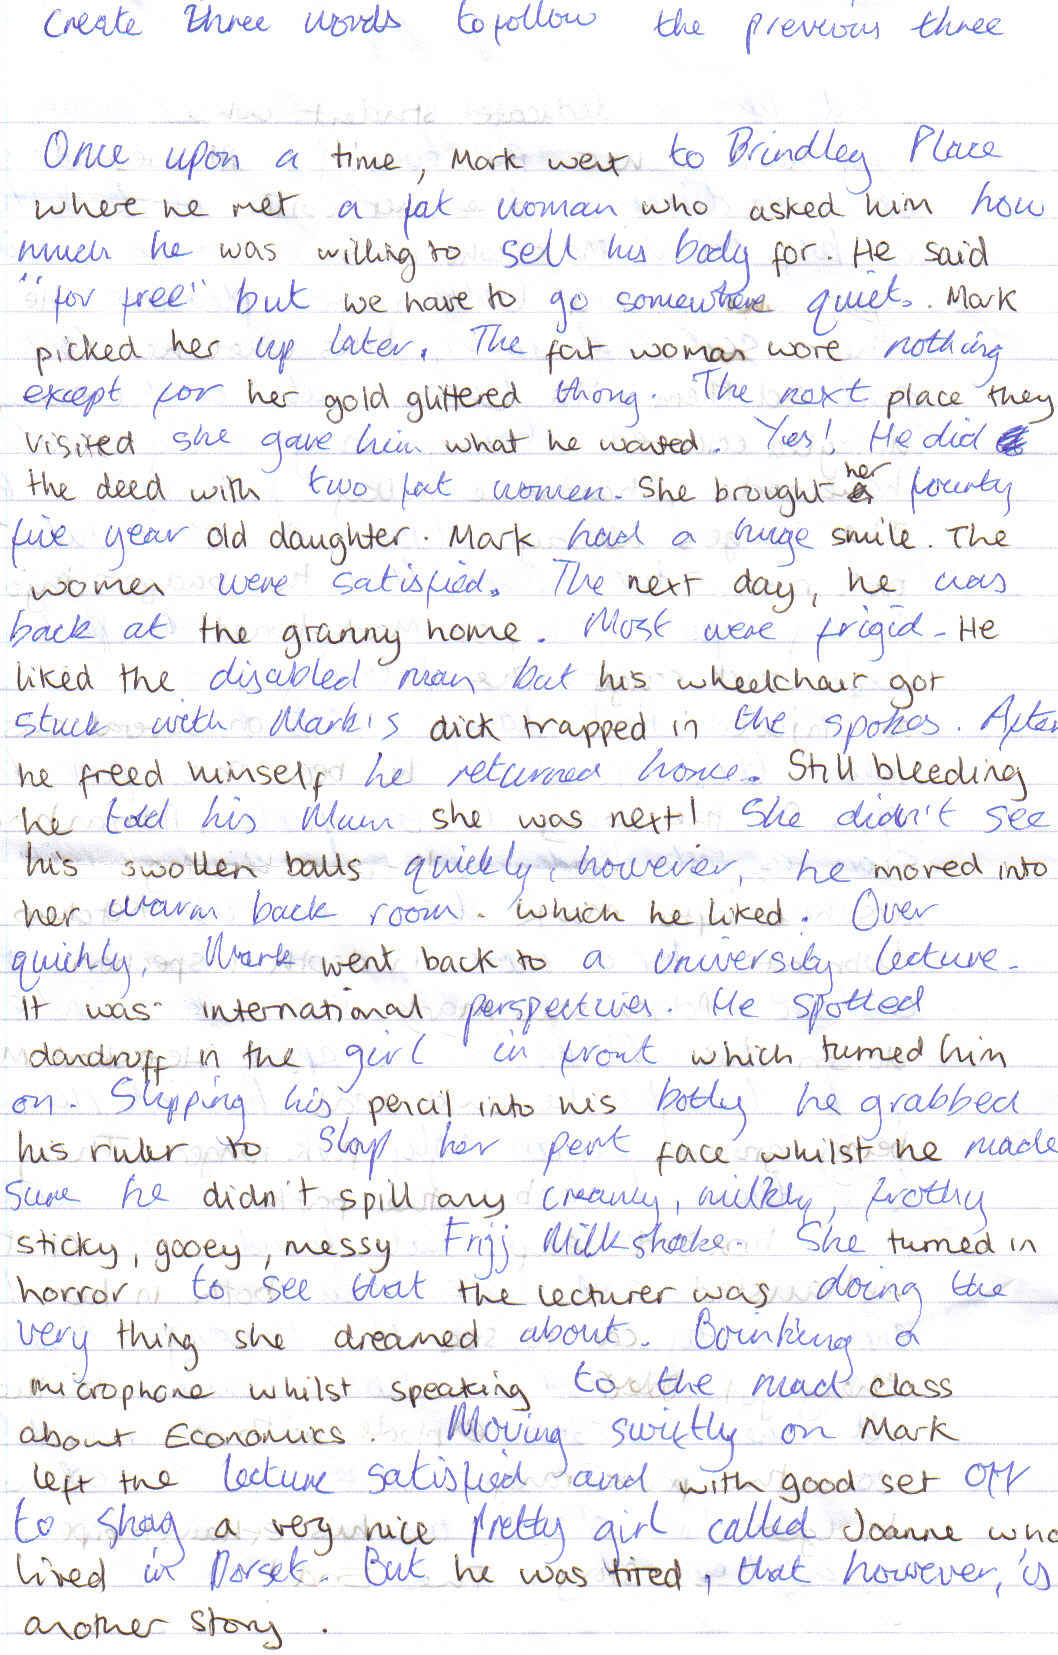 Create three words to follow the previous three
Once upon a time, Mark went to Brindley Place
where he met a fat woman who asked him how
much he was willing to sell his body for. He said
"for free" but we have to go somewhere quiet. Mark
picked her up later. The fat woman wore nothing
except for her gold glittered thong. The next place they
visited she gave him what he wanted. Yes! He did
the deed with two fat women. She brought her fourty
five year old daughter. Mark had a huge smile. The
women were satisfied. The next day, he was
back at the granny home. Most were frigid. He
liked the disabled man but his wheelchair got
stuck with Mark's dick trapped in the spokes. After
he freed himself he returned home. Still bleeding
he told his Mum she was next! She didn't see
his swollen balls quickly, however, he moved into
her warm back room. which he liked. Over
quickly, Mark went back to a university lecture.
It was international perspectives. He spotted
dandruff in the girl in front which turned him
on. Slipping his pencil into his botty he grabbed
his ruler to slap her pert face whilst he made
sure he didn't spill any creamy, milky, frothy
sticky, gooey, messy Frijj Milkshake. She turned in
horror to see that the lecturer was doing the
very thing she dreamed about. Boinking a
microphone whilst speaking to the mad class
about Economics. Moving swiftly on Mark
left the lecture satisfied and with good set off
to shag a very nice pretty girl called Joanne who
lived in Dorset. But he was tired, that however, is
another story.